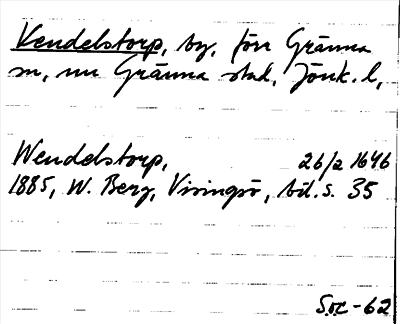 Vendelstorp, by, förr Gränna
sn, nu Gränna stad, Jönk. l,
Wendelstorp, 26/2 1646
1885, W. Berg, Visingsö, bil. s. 35
Soc -62